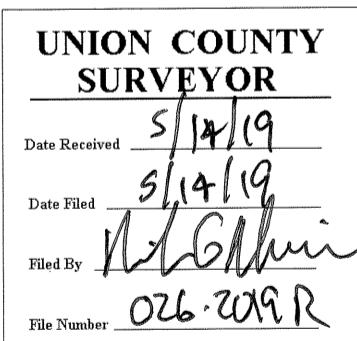 UNION COUNTY
SURVEYOR
Date Received 5/14/19
Date Filed 5/14/19
Filed By
File Number 026-2019 R